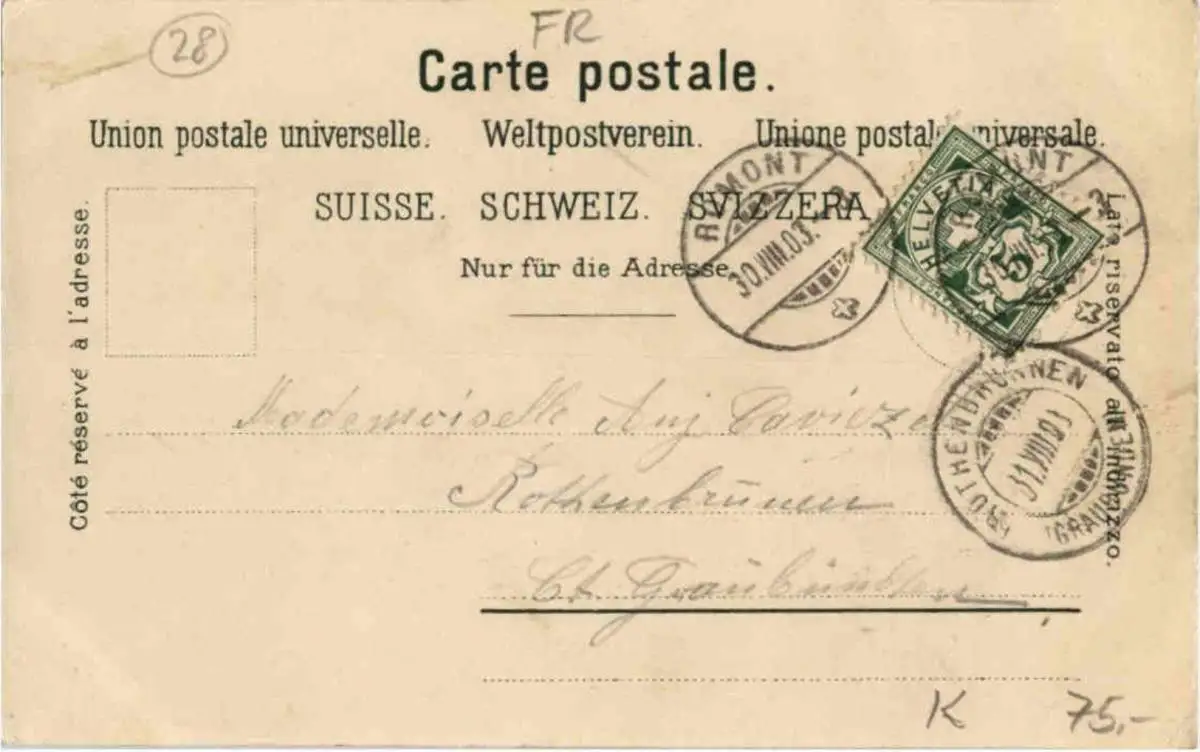 28
FR
Carte postale.
Union postale universelle. Weltpostverein. Unione postale universale.
SUISSE. SCHWEIZ. SVIZZERA
Nur für die Adresse.
Côté réservé à l'adresse.
Lato riservato all'indirizzo.
ROMONT
30.VIII.03.
HELVETIA
5
ROTHENBRUNNEN
31.VIII.03
(GRAUBÜNDEN)
Mademoiselle
Rothenbrunnen
Ct. Graubünden
K 75,-